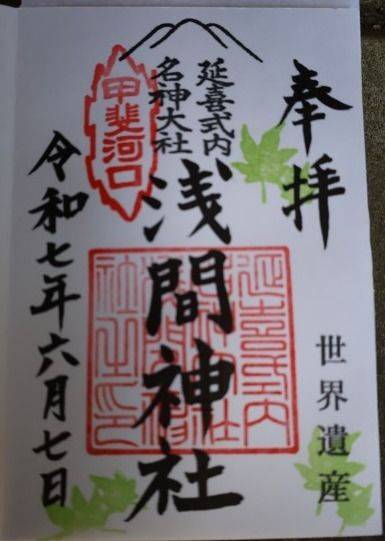 奉拝
世界遺産
延喜式内
名神大社
浅間神社
甲斐河口
令和七年六月七日